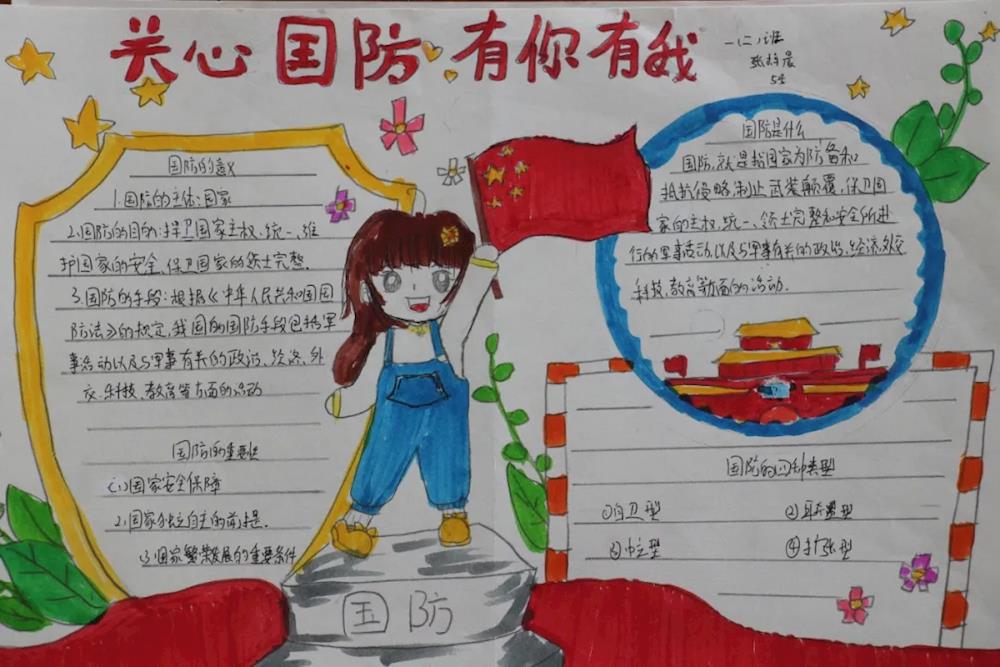 关心国防 有你有我
一(二)班
张梓晨
5号
国防的意义
1.国防的主体:国家
2.国防的目的:捍卫国家主权、统一、维
护国家的安全、保卫国家的领土完整.
3.国防的手段:根据《中华人民共和国国
防法》的规定,我国的国防手段包括军
事活动以及与军事有关的政治、经济、外
交、科技、教育等方面的活动
国防的重要性
(1)国家安全保障
2.国家独立自主的前提.
3.国家繁荣发展的重要条件
国防是什么
国防,就是指国家为防备和
抵抗侵略,制止武装颠覆,保卫国
家的主权、统一、领土完整和安全所进
行的军事活动,以及与军事有关的政治、经济、外交
科技、教育等方面的活动.
国防的四种类型
①自卫型
②联盟型
③中立型
④扩张型
国防